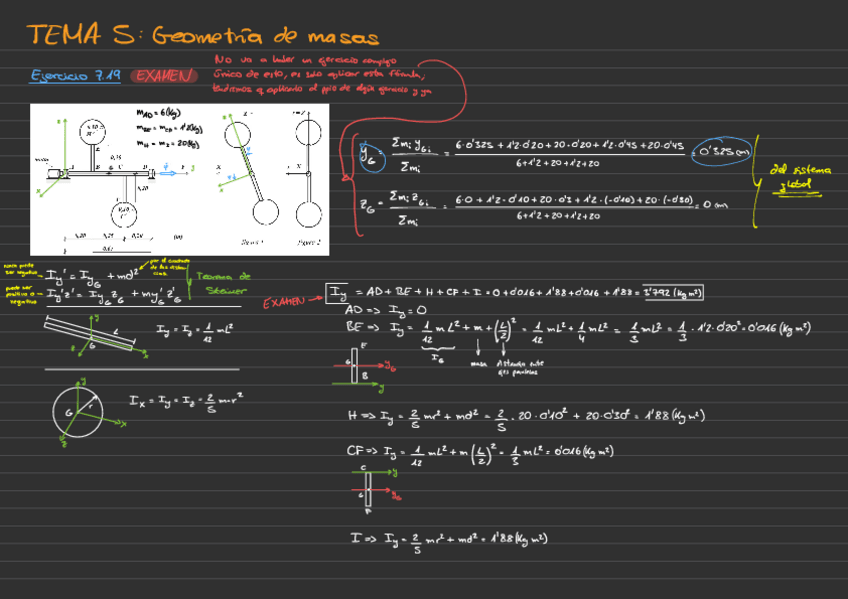 TEMA 5: Geometría de masas
Ejercicio 7.19 EXAMEN
No va a haber un ejercicio complejo
único de esto, es solo aplicar esta fórmula,
tendremos q aplicarlo al ppio de algún ejercicio y ya
m_AD = 6(kg)
m_BE = m_CF = 1'2(kg)
m_H = m_I = 20(kg)
Figura 1 Figura 2
y_G = Σm_i y_Gi / Σm_i = 6·0'325 + 1'2·0'20 + 20·0'20 + 1'2·0'45 + 20·0'45 / 6+1'2+20+1'2+20 = 0'325 cm
z_G = Σm_i z_Gi / Σm_i = 6·0 + 1'2·0'10 + 20·0'3 + 1'2·(-0'10) + 20·(-0'30) / 6+1'2+20+1'2+20 = 0 cm
del sistema
global
nunca puede
ser negativo
I_y' = I_yG + md²
por el cuadrado
de las distan
cias
puede ser
positivo o
negativo
I_y'z' = I_yG z_G + m y'_G z'_G
Teorema de
Steiner
I_y = I_y = 1/12 mL²
I_x = I_y = I_z = 2/5 m·r²
EXAMEN → I_y = AD + BE + H + CF + I = 0 + 0'016 + 1'88 + 0'016 + 1'88 = 3'792 (kg m²)
AD => I_y = 0
BE => I_y = 1/12 mL² + m + (L/2)² = 1/12 mL² + 1/4 mL² = 1/3 mL² = 1/3 · 1'2 · 0'20² = 0'016 (kg m²)
I_G
masa
distancia entre
ejes paralelos
E
G
y_G
B
y
H => I_y = 2/5 mr² + md² = 2/5 · 20 · 0'10² + 20 · 0'30² = 1'88 (kg m²)
CF => I_y = 1/12 mL² + m (L/2)² = 1/3 mL² = 0'016 (kg m²)
C
y
G
y_G
F
I => I_y = 2/5 mr² + md² = 1'88 (kg m²)